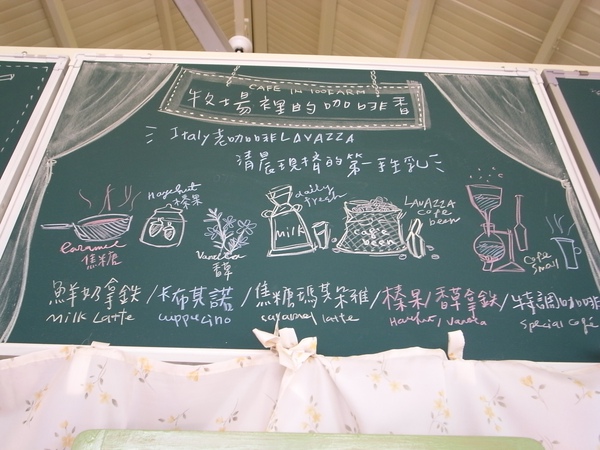 CAFE IN 100 FARM
牧場裡的咖啡香
Italy老咖啡LAVAZZA
清晨現擠的第一手生乳
Hazelnut
榛果
Caramel
焦糖
Vanilla
香草
milk
daily
fresh
cafe
been
LAVAZZA
cafe
been
Cafe
small
鮮奶拿鐵/卡布其諾/焦糖瑪其朵雅/榛果/香草拿鐵/特調咖啡
milk Latte cuppucino caramel latte Hazelnut/Vanilla special cafe